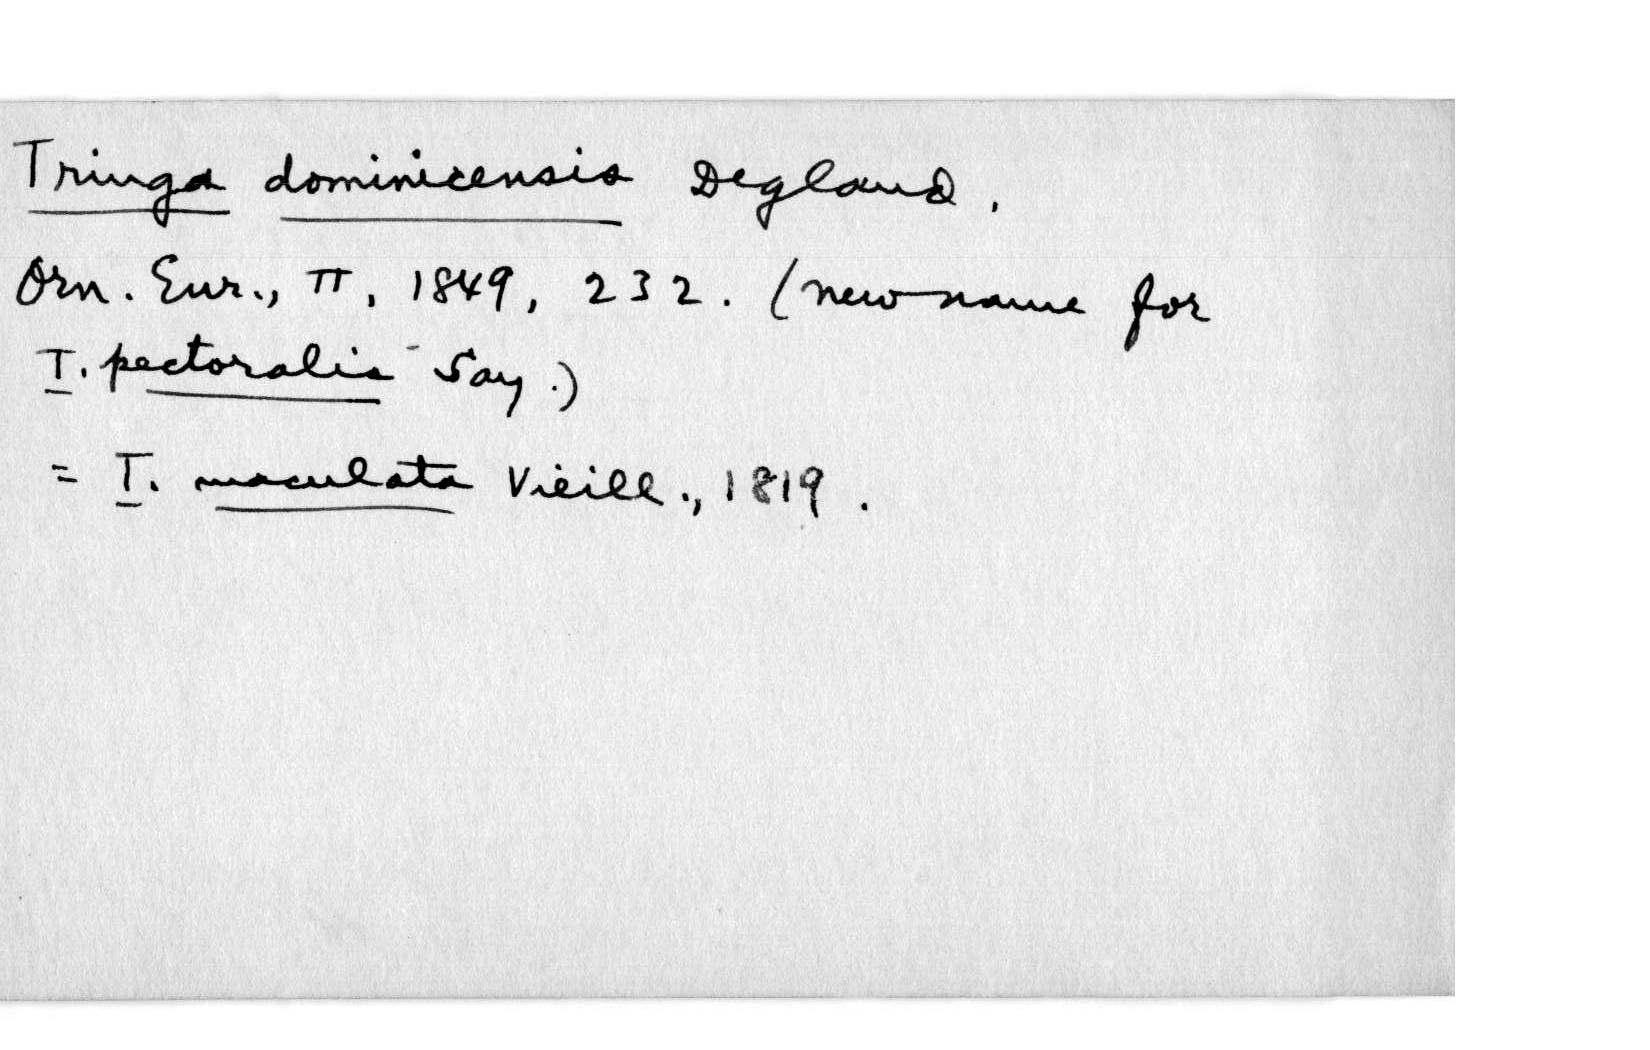 Tringa dominicensis Degland.
Orn. Eur., II, 1849, 232. (new name for
T. pectoralis Say.)
= T. maculata Vieill., 1819.